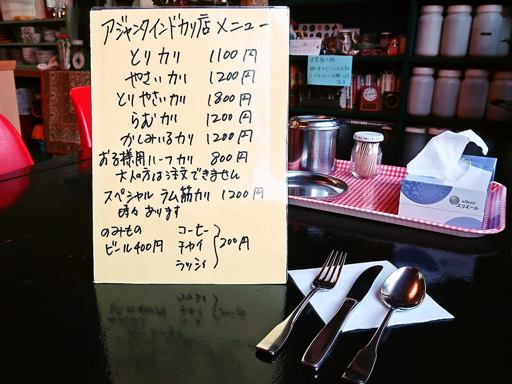 アジャンタインドカリ店 メニュー
とりカリ 1100円
やさいカリ 1200円
とりやさいカリ 1800円
らむカリ 1200円
かしみいるカリ 1200円
お子様用ハーフカリ 800円
大人の方は注文できません
スペシャル ラム筋カリ 1200円
時々あります
のみもの コーヒー
ビール400円 チャイ 200円
ラッシィ
elleair
エリエール